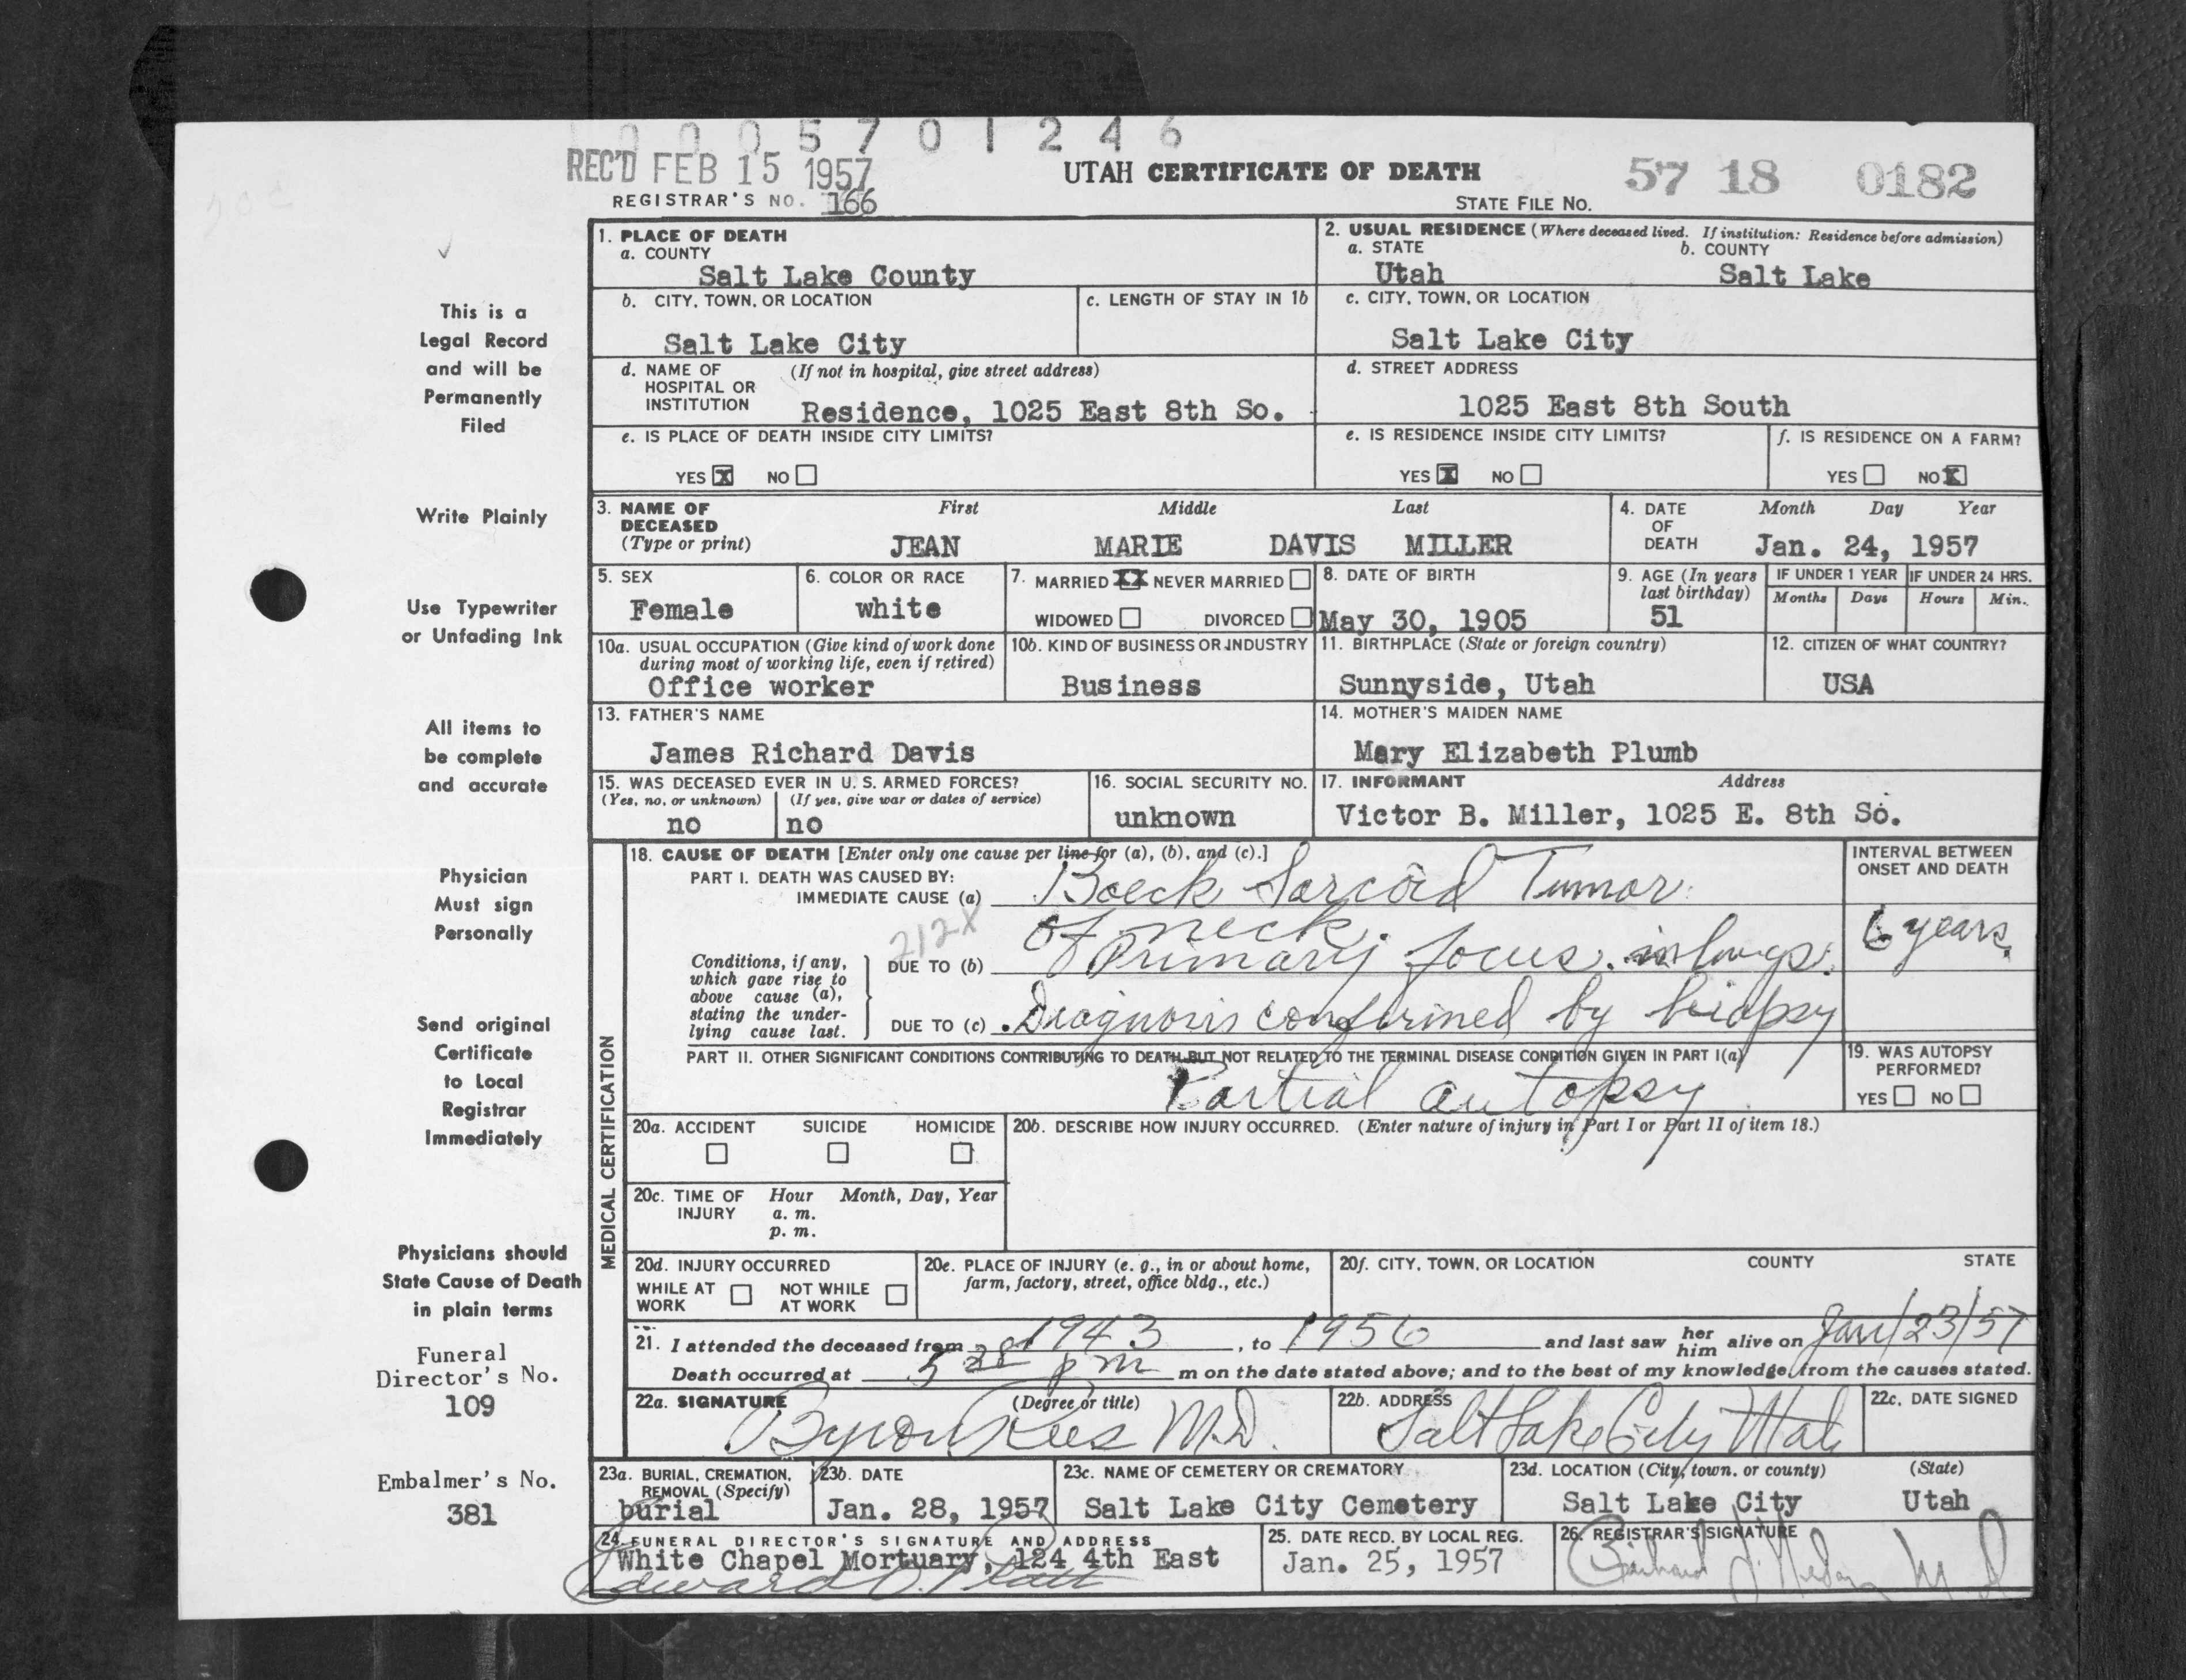 0 0 0 5 7 0 1 2 4 6
REC'D FEB 15 1957
UTAH CERTIFICATE OF DEATH
57 18 0182
REGISTRAR'S NO. 166
STATE FILE NO.
This is a
Legal Record
and will be
Permanently
Filed
Write Plainly
Use Typewriter
or Unfading Ink
All items to
be complete
and accurate
Physician
Must sign
Personally
Send original
Certificate
to Local
Registrar
Immediately
Physicians should
State Cause of Death
in plain terms
Funeral
Director's No.
109
Embalmer's No.
381
1. PLACE OF DEATH
a. COUNTY
Salt Lake County
2. USUAL RESIDENCE (Where deceased lived. If institution: Residence before admission)
a. STATE b. COUNTY
Utah Salt Lake
b. CITY, TOWN, OR LOCATION
Salt Lake City
c. LENGTH OF STAY IN 1b
c. CITY, TOWN, OR LOCATION
Salt Lake City
d. NAME OF (If not in hospital, give street address)
HOSPITAL OR
INSTITUTION Residence, 1025 East 8th So.
d. STREET ADDRESS
1025 East 8th South
e. IS PLACE OF DEATH INSIDE CITY LIMITS?
YES X NO
e. IS RESIDENCE INSIDE CITY LIMITS?
YES X NO
f. IS RESIDENCE ON A FARM?
YES NO X
3. NAME OF First Middle Last
DECEASED
(Type or print) JEAN MARIE DAVIS MILLER
4. DATE Month Day Year
OF
DEATH Jan. 24, 1957
5. SEX
Female
6. COLOR OR RACE
white
7. MARRIED XX NEVER MARRIED
WIDOWED DIVORCED
8. DATE OF BIRTH
May 30, 1905
9. AGE (In years
last birthday)
51
IF UNDER 1 YEAR IF UNDER 24 HRS.
Months Days Hours Min.
10a. USUAL OCCUPATION (Give kind of work done
during most of working life, even if retired)
Office worker
10b. KIND OF BUSINESS OR INDUSTRY
Business
11. BIRTHPLACE (State or foreign country)
Sunnyside, Utah
12. CITIZEN OF WHAT COUNTRY?
USA
13. FATHER'S NAME
James Richard Davis
14. MOTHER'S MAIDEN NAME
Mary Elizabeth Plumb
15. WAS DECEASED EVER IN U. S. ARMED FORCES?
(Yes, no, or unknown) (If yes, give war or dates of service)
no no
16. SOCIAL SECURITY NO.
unknown
17. INFORMANT Address
Victor B. Miller, 1025 E. 8th So.
MEDICAL CERTIFICATION
18. CAUSE OF DEATH [Enter only one cause per line for (a), (b), and (c).]
PART I. DEATH WAS CAUSED BY:
IMMEDIATE CAUSE (a) Boeck Sarcoid Tumor
of neck.
212X
Conditions, if any,
which gave rise to
above cause (a),
stating the under-
lying cause last.
DUE TO (b) Primary focus in lungs.
DUE TO (c) Diagnosis confirmed by biopsy
INTERVAL BETWEEN
ONSET AND DEATH
6 years.
PART II. OTHER SIGNIFICANT CONDITIONS CONTRIBUTING TO DEATH BUT NOT RELATED TO THE TERMINAL DISEASE CONDITION GIVEN IN PART I(a)
Partial autopsy
19. WAS AUTOPSY
PERFORMED?
YES NO
20a. ACCIDENT SUICIDE HOMICIDE
20b. DESCRIBE HOW INJURY OCCURRED. (Enter nature of injury in Part I or Part II of item 18.)
20c. TIME OF Hour Month, Day, Year
INJURY a. m.
p. m.
20d. INJURY OCCURRED
WHILE AT NOT WHILE
WORK AT WORK
20e. PLACE OF INJURY (e. g., in or about home,
farm, factory, street, office bldg., etc.)
20f. CITY, TOWN, OR LOCATION COUNTY STATE
21. I attended the deceased from 1943, to 1956 and last saw her him alive on Jan/23/57
Death occurred at 5 28 p m m on the date stated above; and to the best of my knowledge, from the causes stated.
22a. SIGNATURE (Degree or title)
Byron Rees M.D.
22b. ADDRESS
Salt Lake City Utah
22c. DATE SIGNED
23a. BURIAL, CREMATION,
REMOVAL (Specify)
burial
23b. DATE
Jan. 28, 1957
23c. NAME OF CEMETERY OR CREMATORY
Salt Lake City Cemetery
23d. LOCATION (City, town, or county) (State)
Salt Lake City Utah
24. FUNERAL DIRECTOR'S SIGNATURE AND ADDRESS
White Chapel Mortuary, 124 4th East
Edward
25. DATE RECD. BY LOCAL REG.
Jan. 25, 1957
26. REGISTRAR'S SIGNATURE